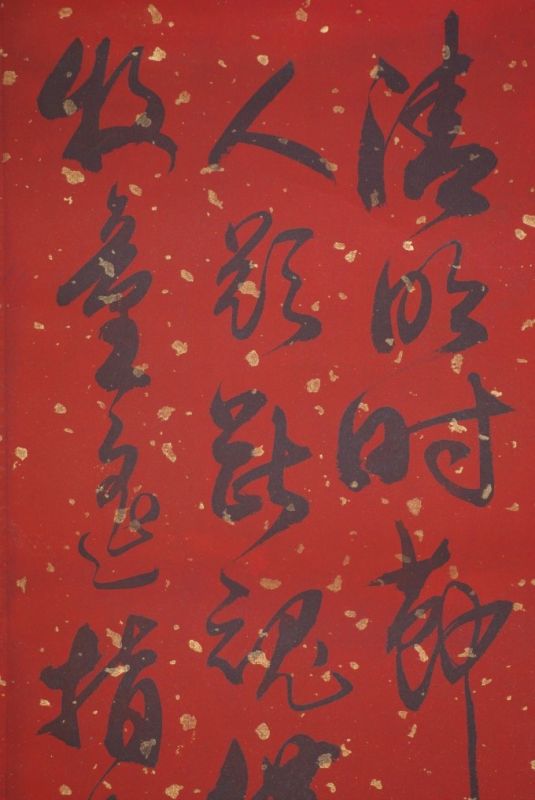 清明时节
人欲断魂
牧童遥指